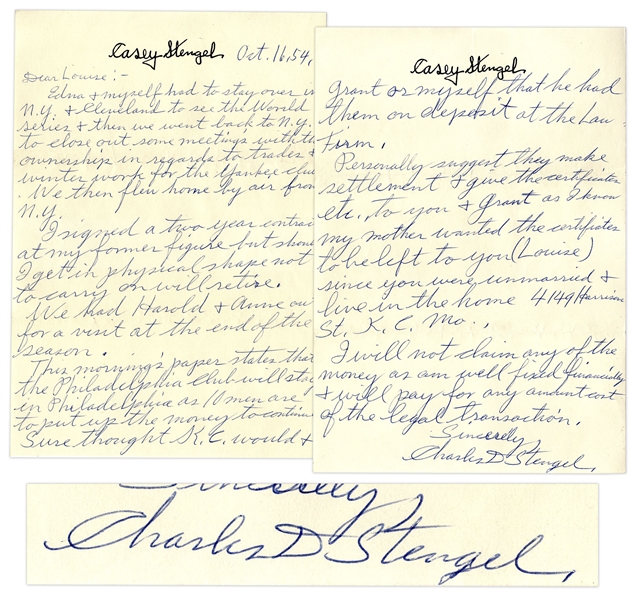 Casey Stengel
Oct. 16, 54,
Dear Louise:-
Edna & myself had to stay over in
N.Y. & Cleveland to see the World
series & then we went back to N.Y.
to close out some meetings with the
ownership in regards to trades &
winter work for the Yankee club
. We then flew home by air from
N.Y.
I signed a two year contrac
at my former figure but shou
I get in physical shape not
to carry on will retire.
We had Harold & Anne ou
for a visit at the end of the
season.
This morning's paper states that
the Philadelphia Club will stay
in Philadelphia as 10 men are
to put up the money to continu
Sure thought K.C. would &
Casey Stengel
grant or myself that he had
them on deposit at the Law
Firm.
Personally suggest they make
settlement & give the certificates
etc. to you & grant as I know
my mother wanted the certificates
to be left to you (Louise)
since you were unmarried &
live in the home 4149 Harrison
St. K.C. Mo..
I will not claim any of the
money as am well fixed financially
& will pay for any amount cost
of the legal transaction.
Sincerely
Charles D Stengel.
Sincerely
Charles D Stengel.